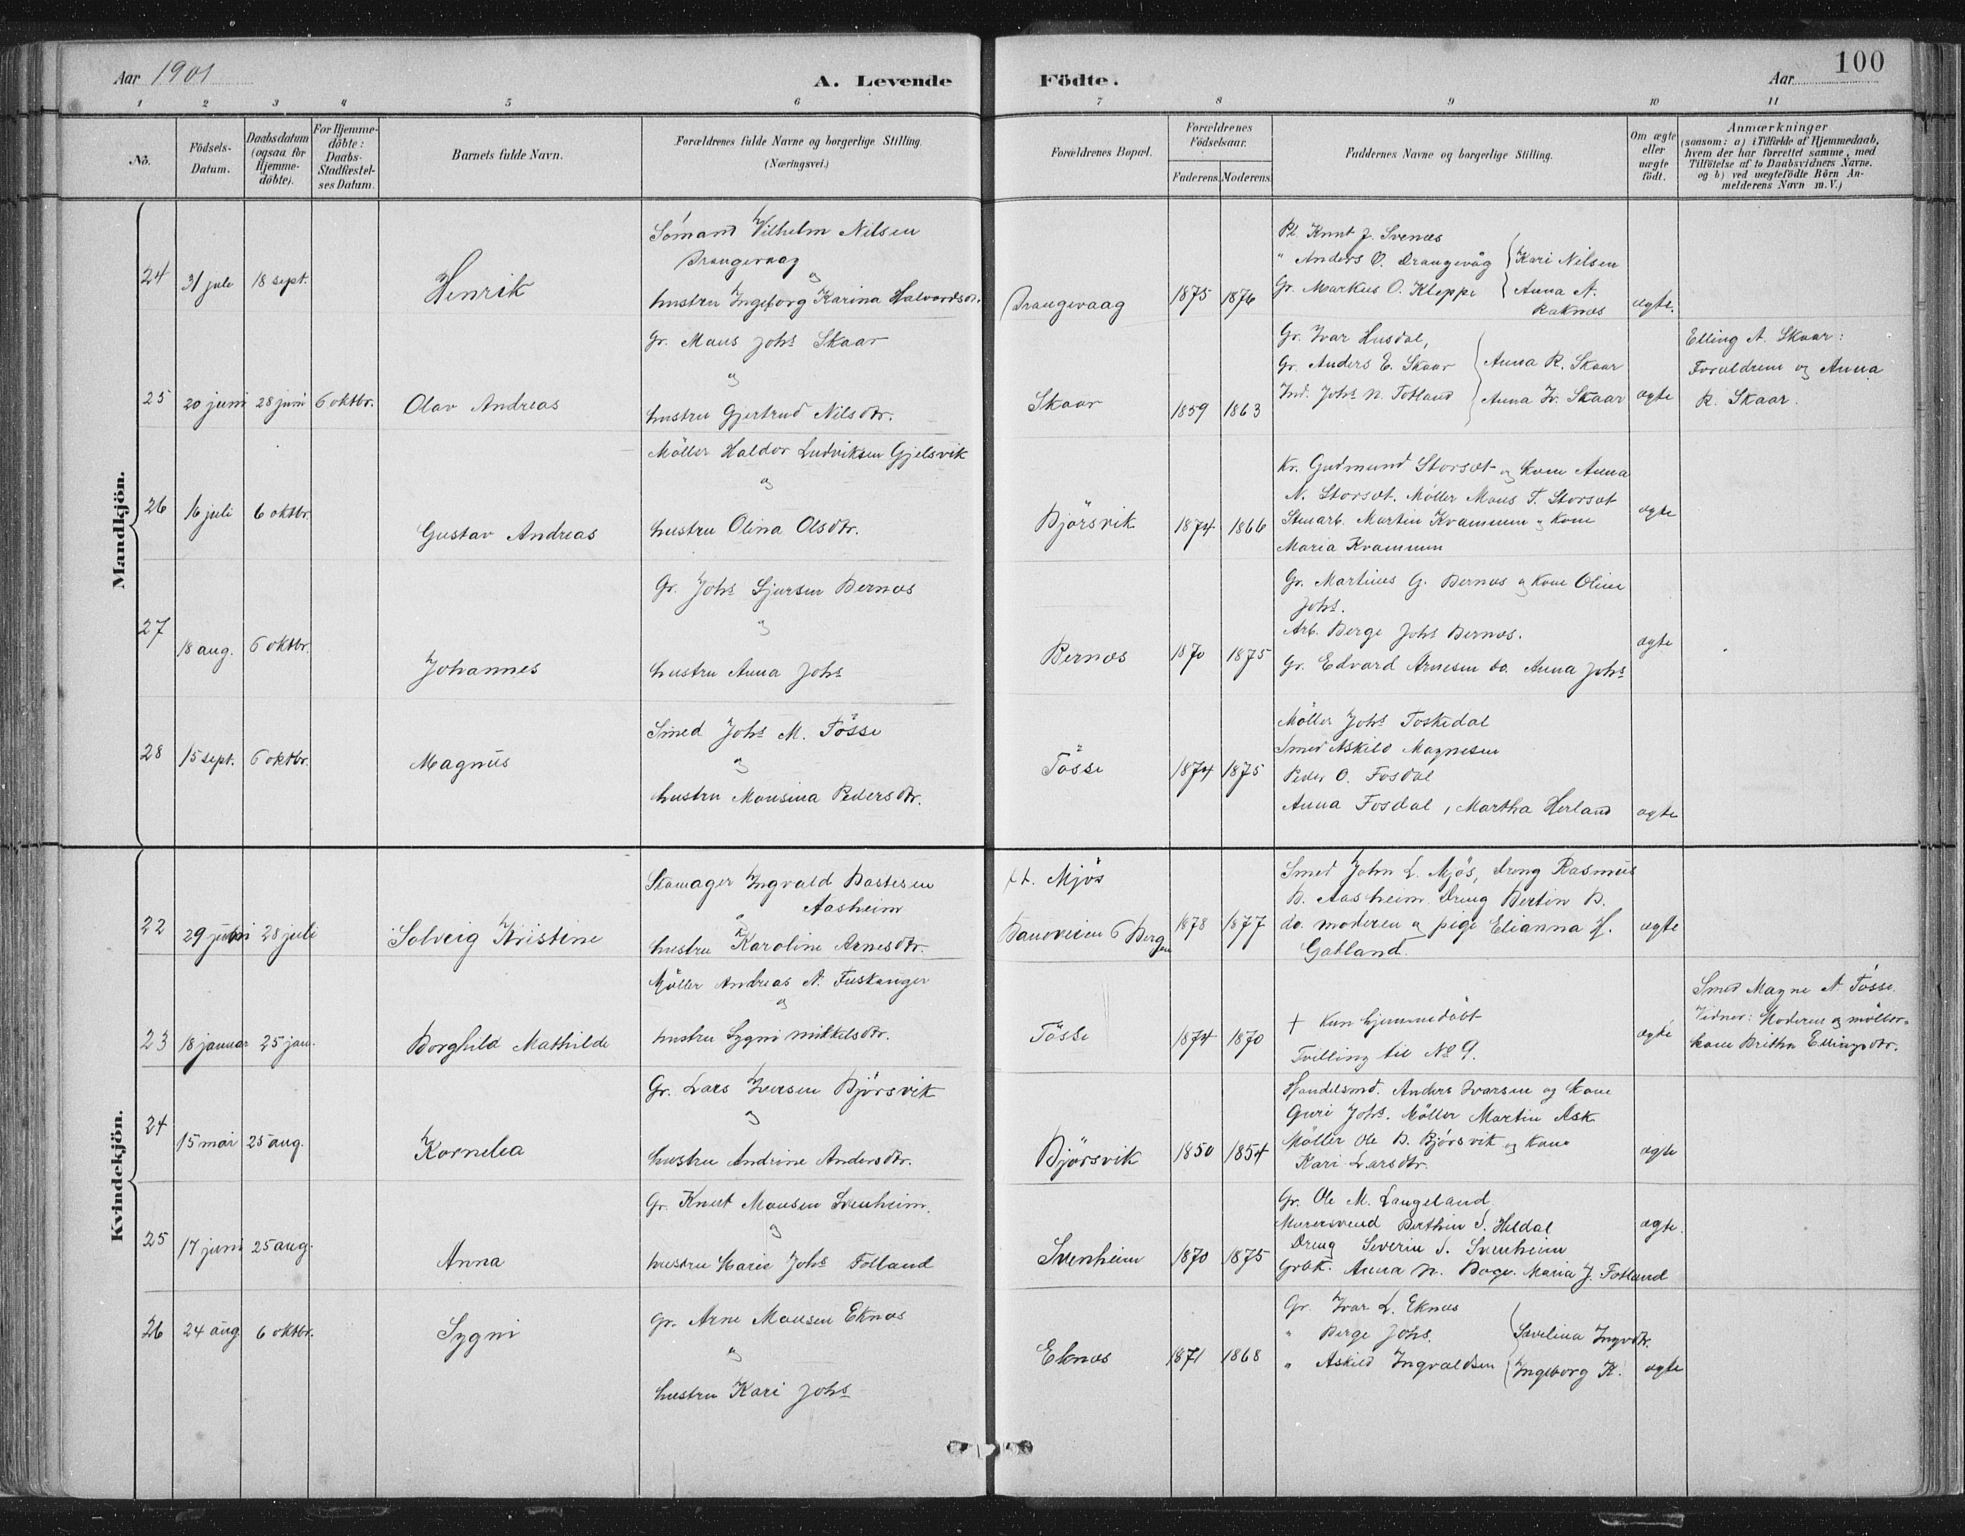 Aar 1901
A. Levende Födte.
Aar
100
1 2 3 4 5 6 7 8 9 10 11
No.
Födsels-Datum.
Daabsdatum (ogsaa for Hjemmedöbte).
For Hjemmedöbte: Daabs-Stadfæstelses Datum.
Barnets fulde Navn.
Forældrenes fulde Navne og borgerlige Stilling.
(Næringsvei.)
Forældrenes Bopæl.
Forældrenes Födselsaar.
Faderens. Moderens.
Faddernes Navne og borgerlige Stilling.
Om ægte eller uægte födt.
Anmærkninger
(saasom: a) i Tilfælde af Hjemmedaab,
hvem der har forrettet samme, med
Tilföielse af to Daabsvidners Navne.
og b) ved uægtefödte Börn Anmelderens Navn m. V.)
Mandkjön.
24 31 jule 18 sept. Henrik
Sömand Vilhelm Nilsen
Drangevaag
og
hustru Ingeborg Karina Halvordsdr.
Drangevaag 1875 1876
Pl. Knut J. Svenæs
" Anders O. Drangevåg
Gr. Markus O. Kleppe
Kari Nilsen
Anna A.
Raknæs
ægte.
25 20 juni 28 juni 6 oktbr. Olav Andreas
Gr. Mans Johs Skaar
og
hustru Gjertrud Nilsdtr.
Skaar 1859 1863
Gr. Ivar Husdal,
Gr. Anders E. Skaar
Ind. Johs N. Totland
Anna R. Skaar
Anna Iv. Skaar
ægte
Elling A. Skaar:
Forældrene og Anna
R. Skaar.
26 16 juli 6 oktbr. Gustav Andreas
Möller Haldor Ludviksen Gjelsvik
og
hustru Olina Olsdtr.
Björsvik 1874 1866
Kr. Gudmund Storset og kone Anna
N. Storset. Möller Mons T. Storset
Stenarb. Martin Kvammen og kone
Maria Kvammen
ægte
27 18 aug. 6 oktbr. Johannes
Gr. Johs Sjursen Bernæs
og
hustru Anna Johs
Bernæs 1870 1875
Gr. Martines G. Bernæs og kone Oline
Johs.
Arb. Berge Johs Bernæs.
Gr. Edvard Arnesen do. Anna Johs
ægte
28 15 sept. 6 oktbr. Magnus
Smed Johs M. Tösse
og
hustru Monsina Pedersdtr.
Tösse 1874 1875
Möller Johs Toskedal
Smed Askild Magnesen
Peder O. Fosdal
Anna Fosdal, Martha Herland
ægte
Kvindekjön.
22 29 juni 28 juli Solveig Kristine
Skomager Ingvald Bastesen
Aasheim
og
hustru Karoline Arnesdtr.
f.t. Mjös
Sandveien 6 Bergen 1878 1877
Smed John L. Mjös, Dreng Rasmus
B. Aasheim. Dreng Bertin B.
do. moderen og pige Elianna H.
Gatland.
ægte
23 18 januar 25 jan. Borghild Mathilde
Möller Andreas A. Fuskanger
og
hustru Sygni Mikkelsdtr.
Tösse 1874 1870
† Kun hjemmedöbt
Tvilling til No 9.
ægte
Smed Magne A. Tösse
Vidner: Moderen og möller-
kone Britha Ellingsdtr.
24 15 mai 25 aug. Kornelia
Gr. Lars Iversen Björsvik
og
hustru Andrine Andersdtr.
Björsvik 1850 1854
Handelsmd. Anders Ivarsen og kone
Guri Johs. Möller Martin Ask
Möller Ole B. Björsvik og kone
Kari Larsdtr.
ægte
25 17 juni 25 aug. Anna
Gr. Knut Monsen Svenheim.
og
hustru Marie Johs Totland
Svenheim 1870 1875
Gr. Ole M. Langeland
Murersvend Berthin S. Heldal
Dreng Severin S. Svenheim
Grbk. Anna N. Boge. Maria J. Totland
ægte.
26 24 aug 6 oktbr. Sygni
Gr. Arne Monsen Eknæs
og
hustru Kari Johs
Eknæs 1871 1868
Gr. Ivar L. Eknæs
" Berge Johs.
" Askild Ingvaldsen
Severina Ingvdtr.
Ingeborg K.
ægte